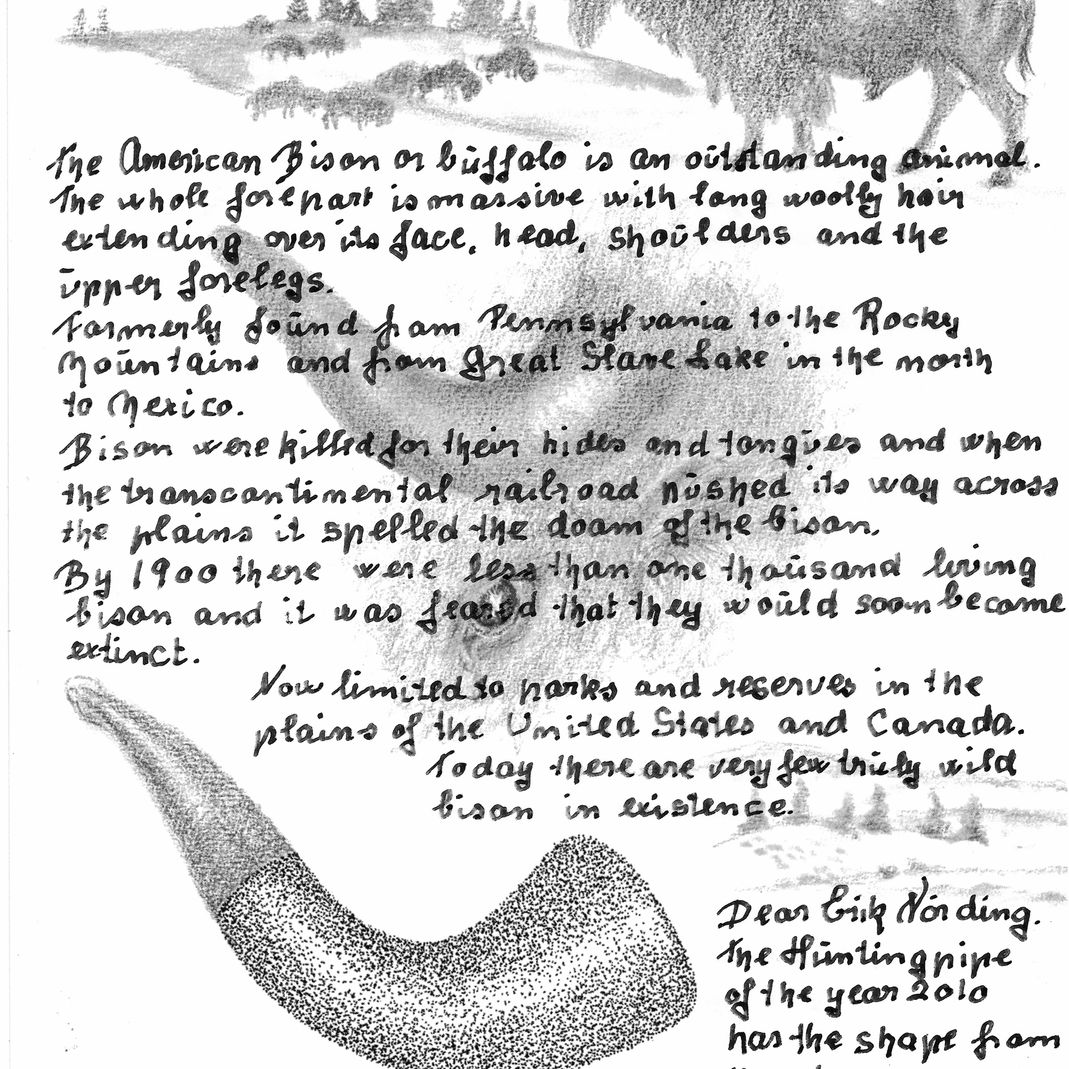 The American Bison or buffalo is an outstanding animal.
The whole forepart is massive with long woolly hair
extending over its face, head, shoulders and the
upper forelegs.
Formerly found from Pennsylvania to the Rocky
Mountains and from Great Slave Lake in the north
to Mexico.
Bison were killed for their hides and tongues and when
the transcontinental railroad pushed its way across
the plains it spelled the doom of the bison.
By 1900 there were less than one thousand living
bison and it was feared that they would soon become
extinct.
Now limited to parks and reserves in the
plains of the United States and Canada.
Today there are very few truly wild
bison in existence.
Dear Erik Nörding.
The Hunting pipe
of the year 2010
has the shape from